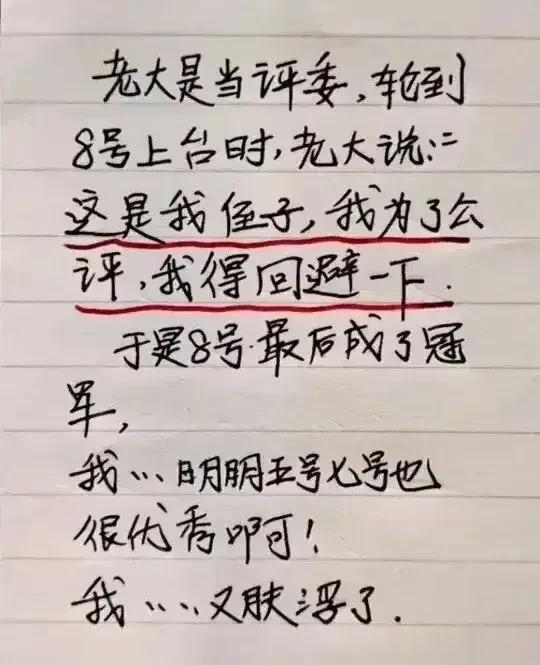 老大是当评委,轮到
8号上台时,老大说:"
这是我侄子,我为了公
评,我得回避一下.
于是8号.最后成了冠
军,
我...明明五号七号也
很优秀啊!
我.....又肤浮了.